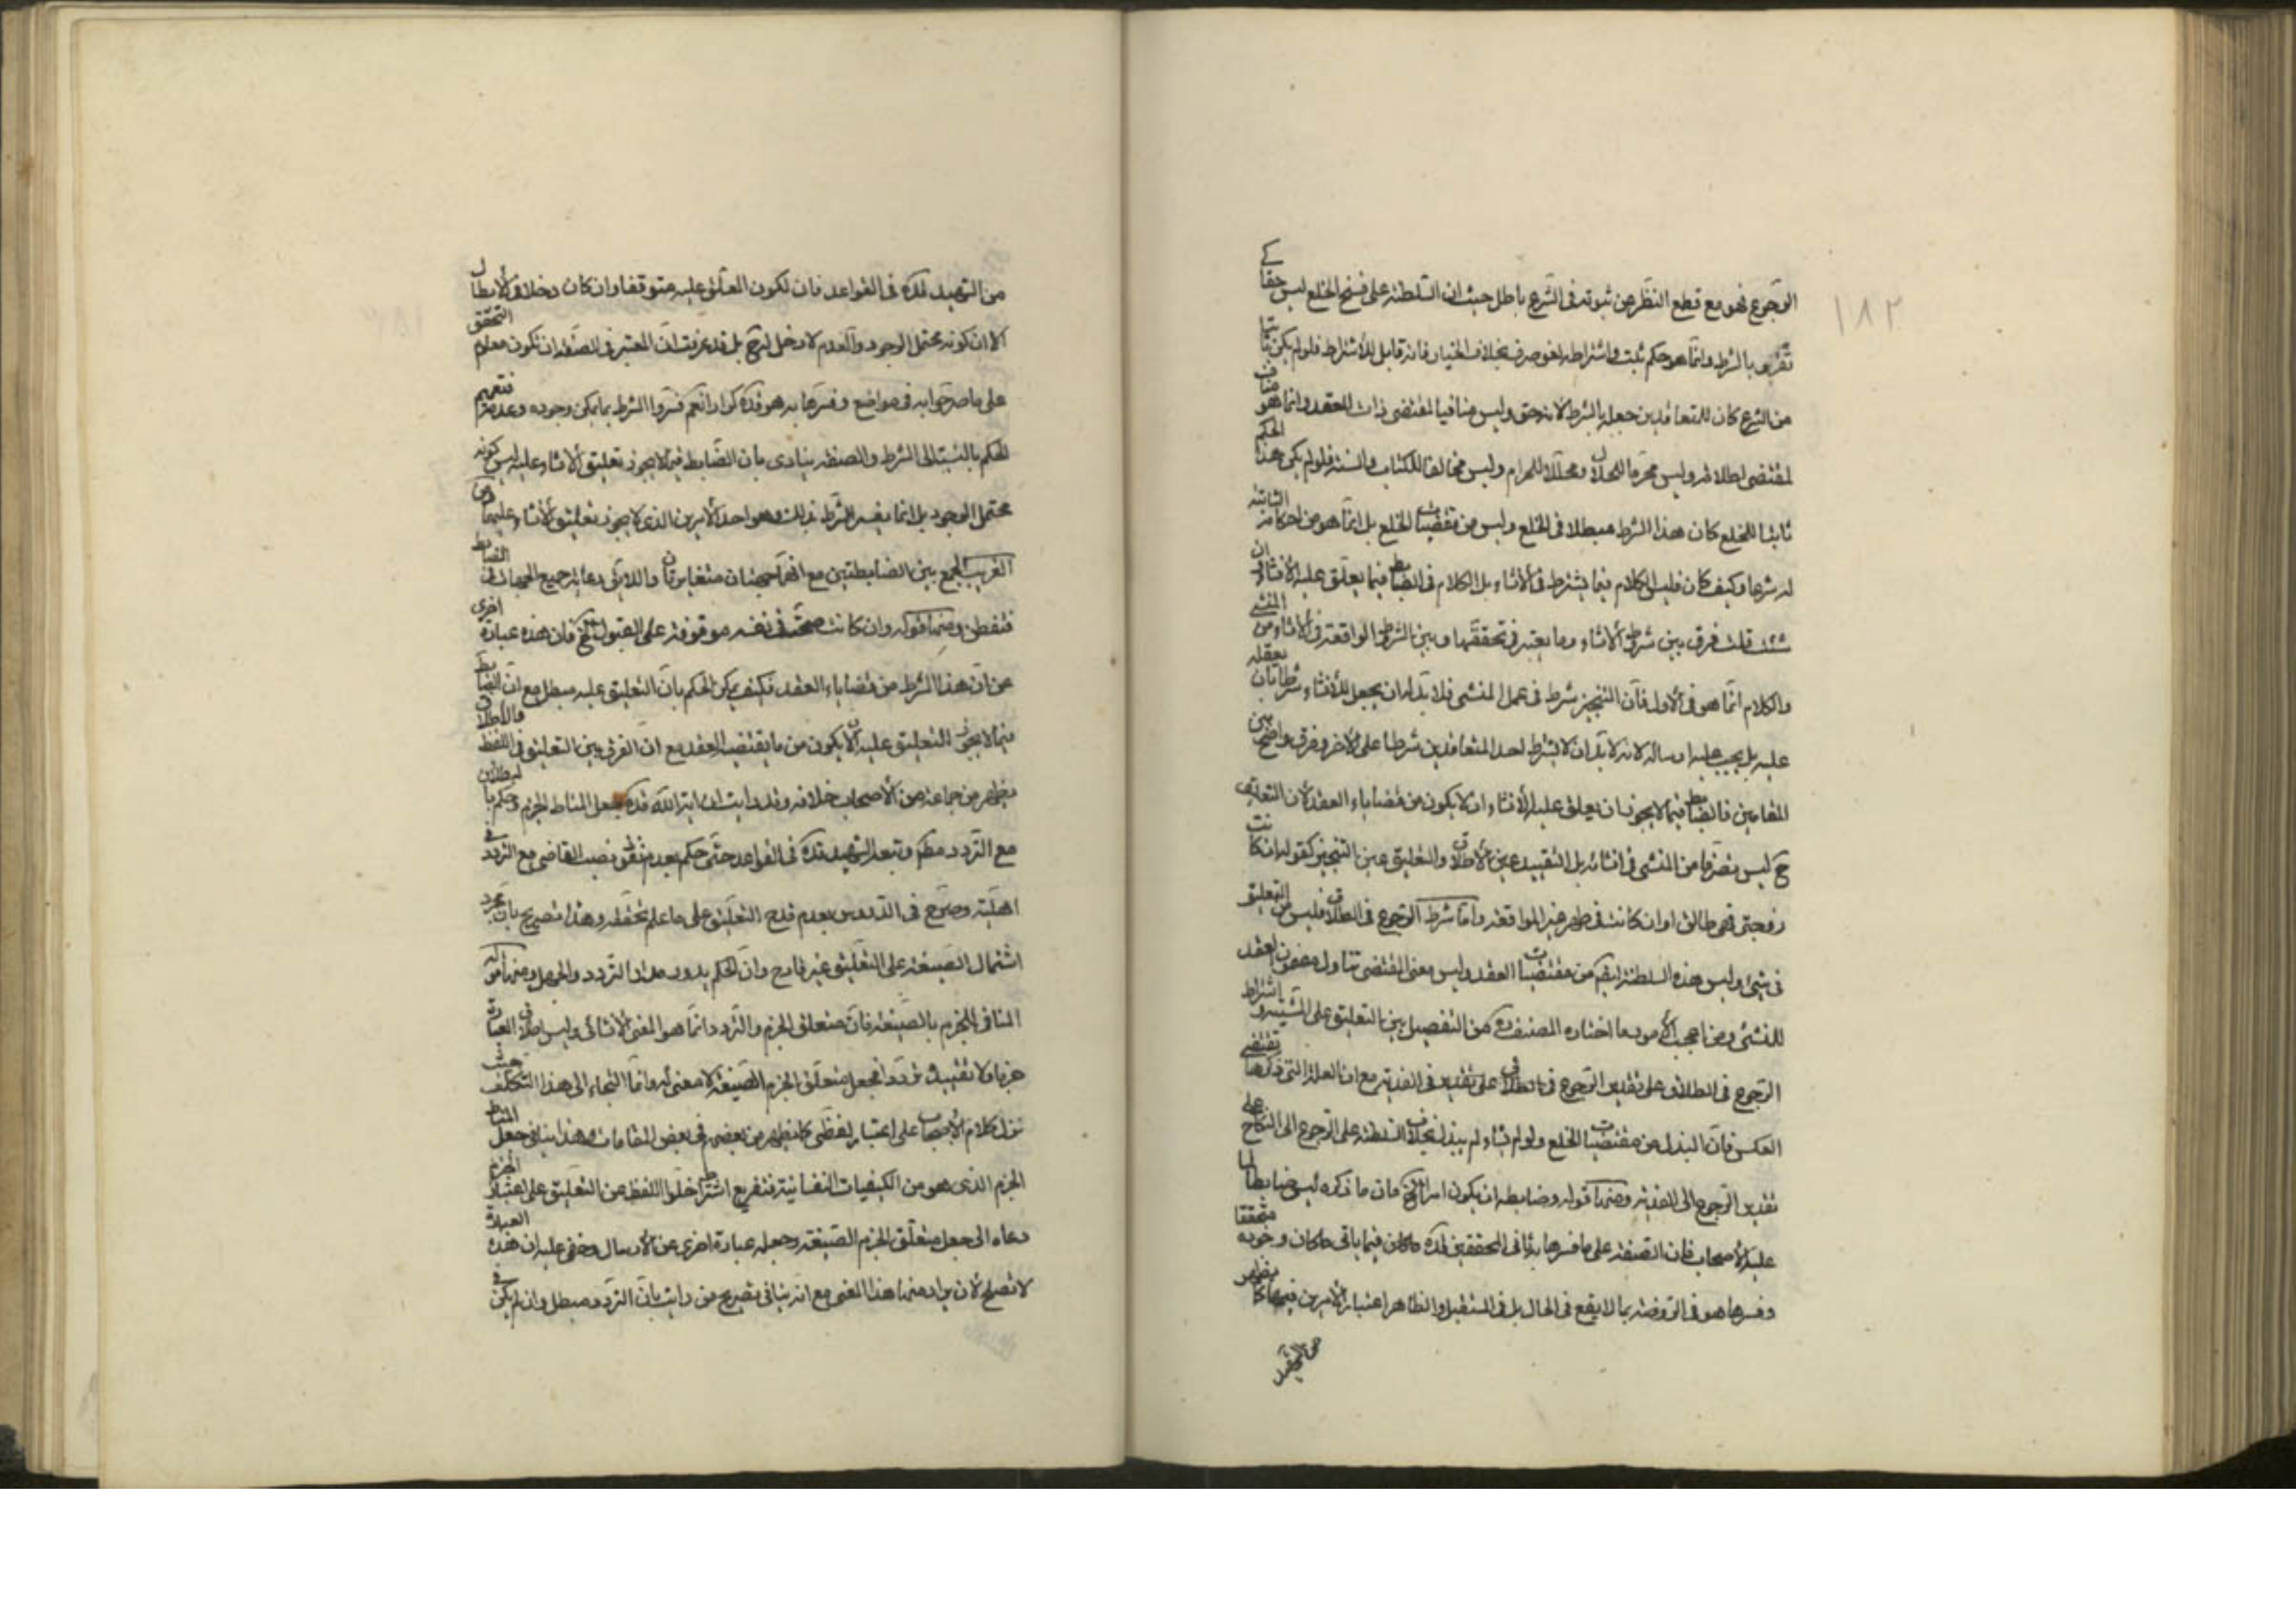 ١٨٢
الرجوع فهو مع قطع النظر عن ثبوته فى الشرع باطل حيث ان السلطنة على فسخ الخلع ليس حقا كى
بالشرط وانما هو حكم ثبت واشتراطه لغو صرف بخلاف الخيار فانه قابل للاشتراط فلو لم يكن ثابتا
من الشرع كان للمتعاقدين جعله بالشرط لانه حق وليس منافيا لمقتضى ذات العقد وانما هو مناف
لمقتضى اطلاقه وليس محرما للحلال ومحللا للحرام وليس مخالفا للكتاب والسنة فلو لم يكن هذا الحكم
ثابتا للخلع كان هذا الشرط مبطلا فى الخلع وليس من مقتضيات الخلع بل انما هو من احكامه الثابتة
له شرعا وكيف كان فليس الكلام فيما يشترط فى الانشاء بل الكلام فى الضابط فيما يعلق عليه الانشاء فان
قلت فرق بين شرط الانشاء وما يعتبر فى تحققها وبين الشرط الواقعة فى الانشاء من المنشى
والكلام انما هو فى الاول فان التنجيز شرط فى عمل المنشى فلا بد له ان يجعل للانشاء شرطا بان يعقله
عليه بل يجب عليه ارساله لانه لا بد ان لا يشترط احد المتعاقدين شرطا على الاخر وفرق واضح بين
المقامين فالضابط فيما لا يجوز ان يعلق عليه الانشاء ان لا يكون من قضاياء العقد لان التعليق
ح ليس تصرفا من المنشى فى انشائه بل التقييد عين الاطلاق والتعليق عين التنجيز كقوله ان كانت
زوجتى فهى طالق او ان كانت فى طهر غير المواقعة واما شرط الرجوع فى الطلاق فليس من التعليق
فى شىء وليس هذه السلطنة ايضم من مقتضيات العقد وليس معنى المقتضى تناول مفهوم العقد
للشىء ومن اعجب الامور ما اختاره المصنف ره من التفصيل بين التعليق على المشية واشتراط
الرجوع فى الطلاق على تقدير الرجوع فى الطلاق على تقدير فى الفدية مع ان العلة التى ذكرها تقتضى
العكس فان البذل من مقتضيات الخلع ولو لم يشاء لم يبذل بخلاف السلطنة على الرجوع الى النكاح على
تقدير الرجوع الى الفدية ومنها قوله وضابطه ان يكون امرا الخ فان ما ذكره ليس ضابطا لما
عليه الاصحاب فان الصفة على ما فسرها به ثانى المحققين قده ماكان فيما ياتى ماكان وجوده متحققا
وفسرها هو فى الروضة بما لا يقع فى الحال بل فى المستقبل والظاهر اعتبار الامرين فيها كما يظهر
من التمهيد
من التمهيد قده فى القواعد فان لكون المعلق عليه متوقفا وان كان دخلا فى الابطال
الا ان كونه محتمل الوجود والعدم لا دخل له ح بل قد عرفت ان المعتبر فى الصفة ان تكون معلوم التحقق
على ما صرحوا به فى مواضع وفسرها به هو قده كرارا نعم فسروا الشرط بما يمكن وجوده وعدمه فتعميم
الحكم بالنسبة الى الشرط والصفة ينادى بان الضابط فيما لا يجوز تعليق الانشاء عليه ليس كونه
محتمل الوجود بل انما يفسر الشرط بذلك وهو احد الامرين الذى لا يجوز تعليق الانشاء عليهما ومن
الغريب الجمع بين الضابطتين مع انهما متغايرتان واللازم رعاية جميع الجهات فى الضابط
فتفطن ومنها قوله وان كانت صحته فى نفسه موقوفة على القبول الخ فان هذه عبارة اخرى
عن ان هذا الشرط من قضاياء العقد فكيف يمكن الحكم بان التعليق عليه مبطل مع ان الضابط
فيما لا يجوز التعليق عليه ان لا يكون من ما يقتضيه العقد مع ان الفرق بين التعليق فى اللفظ والاطلاق
يظهر من جماعة من الاصحاب خلافه وقد رايت ان اية الله قده جعل المناط الجزم وحكم بالبطلان
مع التردد مطم وتبعه الشهيد قده فى القواعد حتى حكم بعدم نفوذ نصب القاضى مع التردد فى
اهليته وصرح فى الدروس بعدم قدح التعليق على ما علم تحققه وهذا تصريح بان مجرد
اشتمال الصيغة على التعليق غير قادح وان الحكم يدور مدار التردد والجهل ومنها قوله
المنافى للجزم بالصيغة فان متعلق الجزم والتردد انما هو المعنى الانشائى وليس اطلاق العبارة
جزما ولا تقييده ترددا فجعل متعلق الجزم الصيغة لا معنى له وانما التجاء الى هذا التكلف حيث
نزل كلام الاصحاب على اعتبار لفظى كما يظهر من بعضهم فى بعض المقامات وهذا ينافى جعل المناط
الجزم الذى هو من الكيفيات النفسانية فتفريع اشتراط خلو اللفظ عن التعليق على اعتبار الجزم
دعاه الى جعل متعلق الجزم الصيغة وجعله عبارة اخرى عن الارسال وخفى عليه ان هذه العبارة
لا تصلح لان يراد منها هذا المعنى مع انه ينافى تصريح من رايت بان التردد مبطل وان لم يكن فى